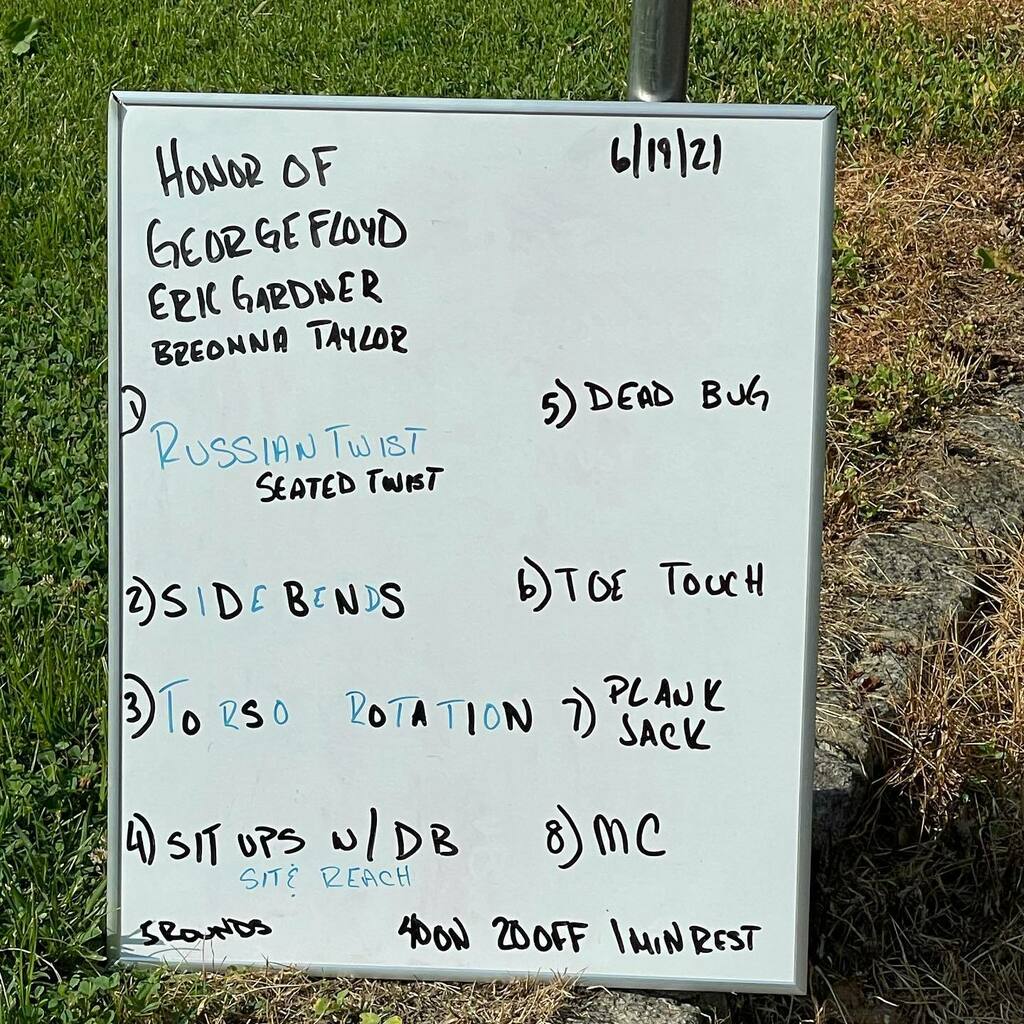 HONOR OF
6/19/21
GEORGE FLOYD
ERIC GARDNER
BREONNA TAYLOR
1)
RUSSIAN TWIST
SEATED TWIST
2) SIDE BENDS
3) TORSO ROTATION
4) SIT UPS W/ DB
SIT & REACH
5) DEAD BUG
6) TOE TOUCH
7) PLANK
JACK
8) MC
5 ROUNDS
40 ON 20 OFF 1 MIN REST